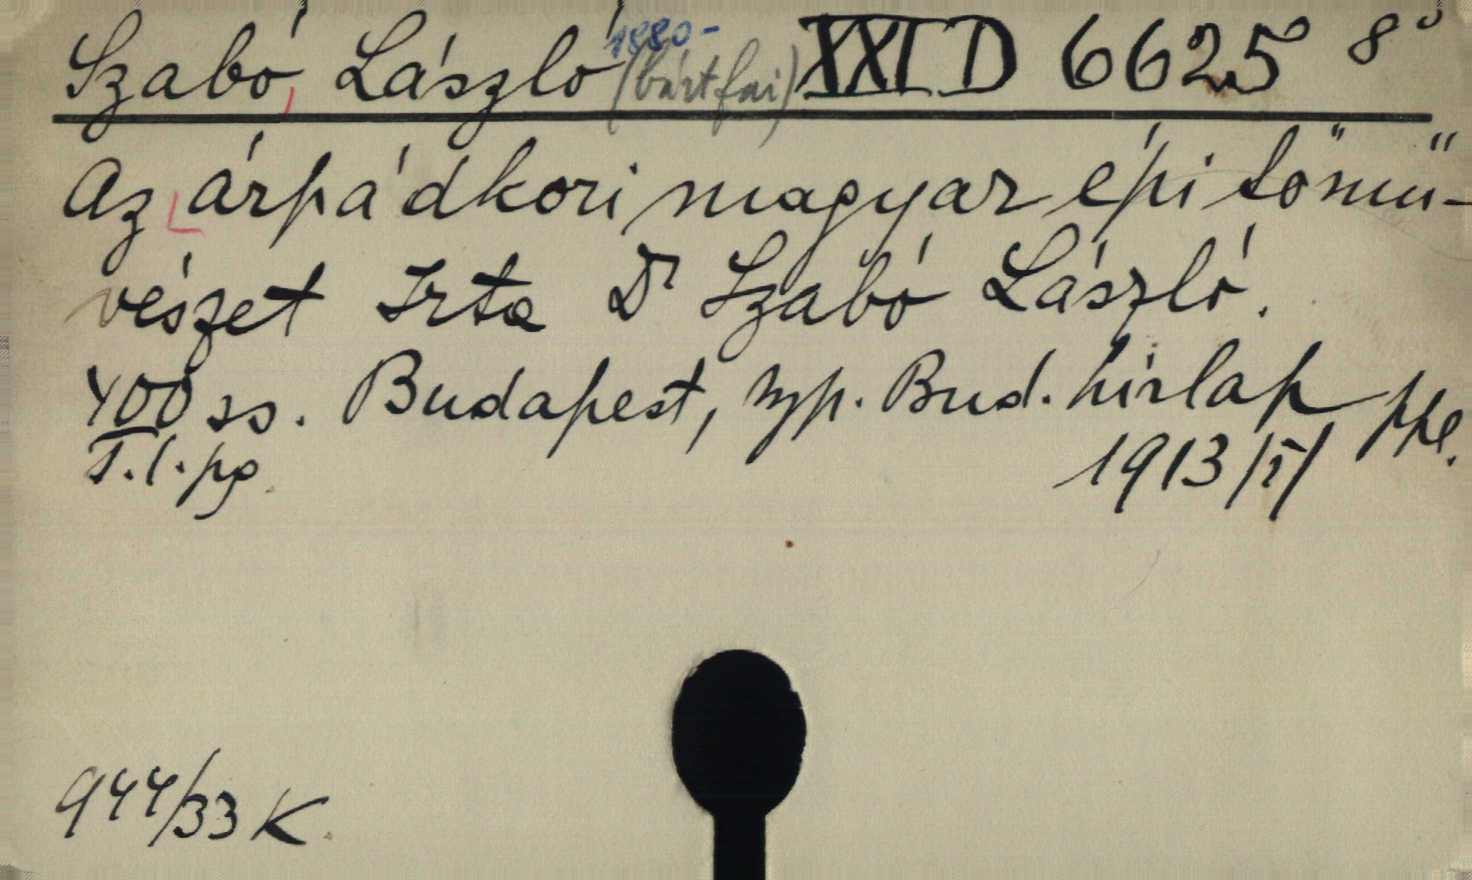 Szabó, László 1880- (bártfai) XXI D 6625° 8°
Az árpádkori magyar építőmű-
vészet Irta Dr Szabó László.
400 ss. Budapest, nyp. Bud. hírlap
T. l. pg. 1913 /I/
944/33 K.